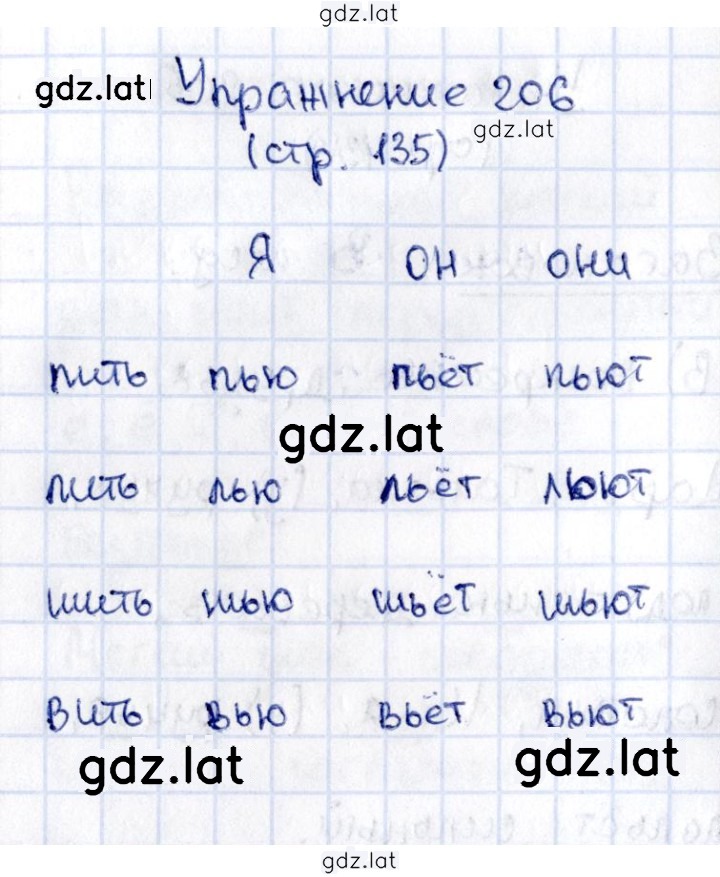 gdz.lat
gdz.lat Упражнение 206
gdz.lat
(стр. 135)
Я он они
пить пью пьёт пьют
gdz.lat
лить лью льёт льют
шить шью шьёт шьют
вить вью вьёт вьют
gdz.lat gdz.lat
gdz.lat